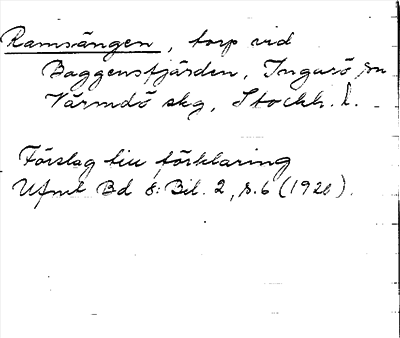 Ramsängen, torp vid
Baggensfjärden, Ingarö sn
Värmdö skg, Stockh. l.
Förslag till förklaring
Ufml Bd 8: Bil. 2, s. 6 (1920).